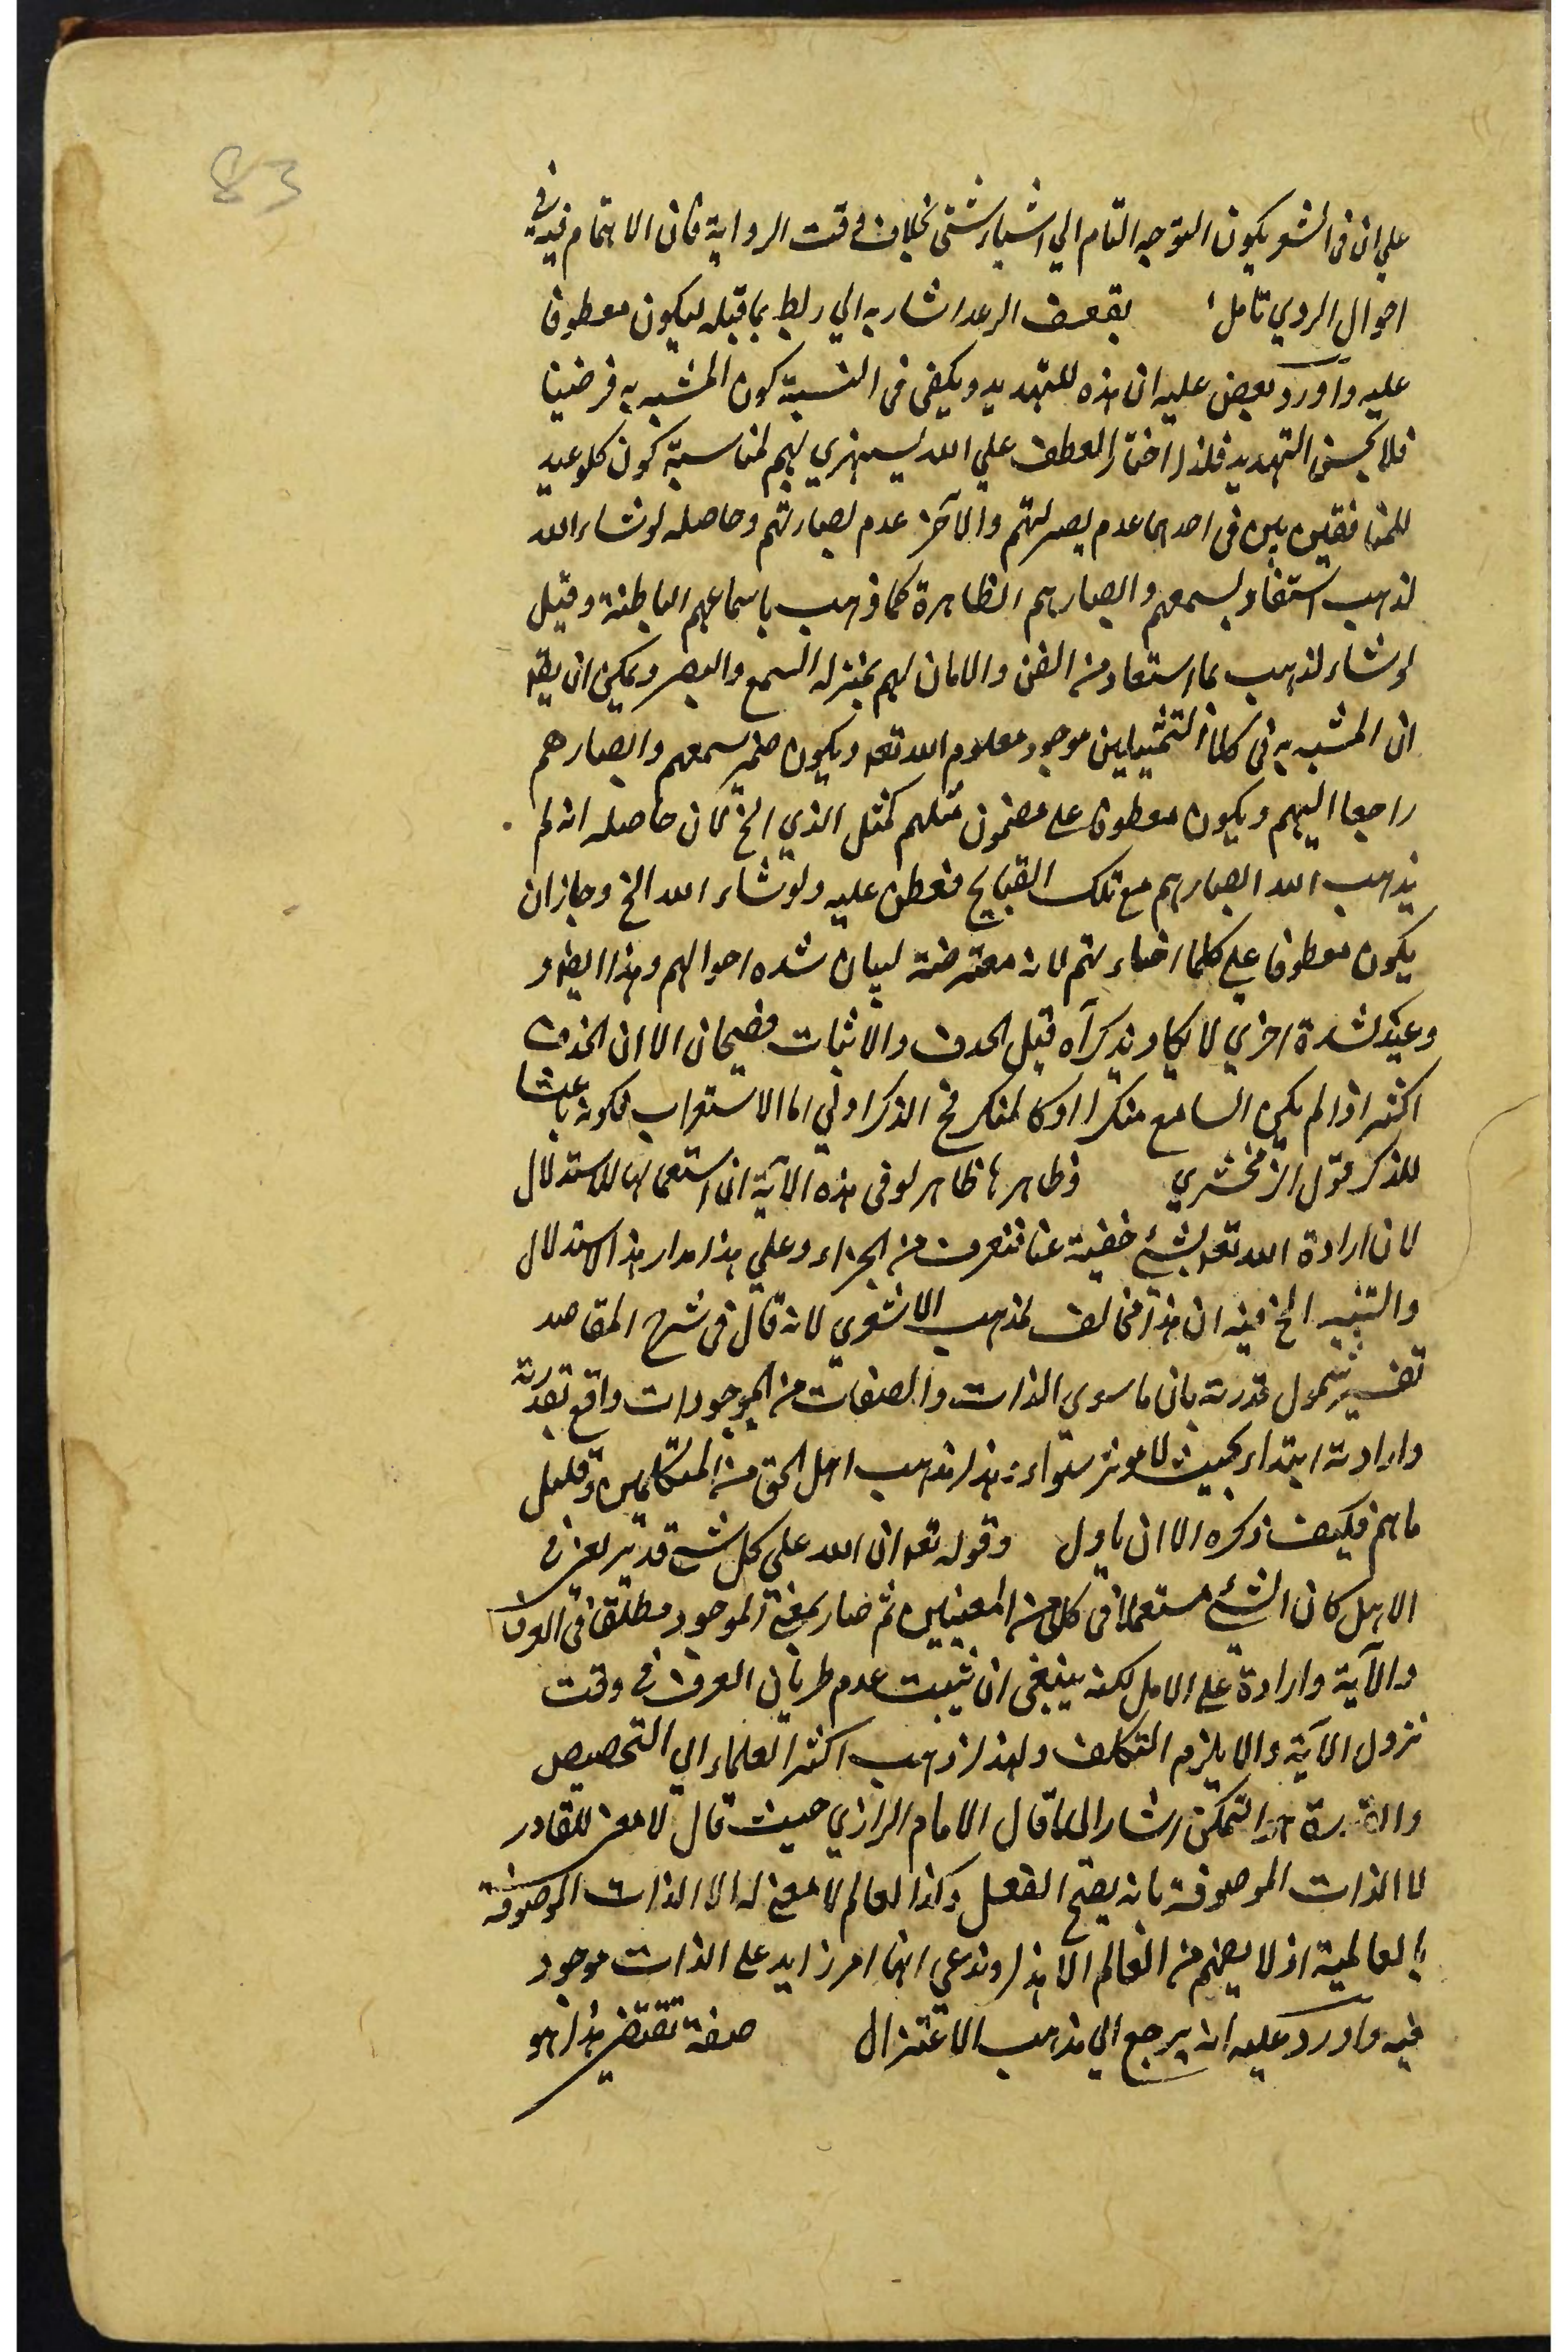 83
علي ان في الشعر يكون التوجه التام الي اشياء شتى بخلاف وقت الرواية فان الاهتمام فيه في
احوال الروي تامل بقصف الرعد اشار به الي ربط بما قبله ليكون معطوفا
عليه واورد بعض عليه ان هذه للتهديد ويكفي في النسبة كون المشبه به فرضيا
فلا يحسن التهديد فلذا اختار العطف علي الله يستهزي بهم لمناسبة كون كل وعيد
للمنافقين بين في احدهما عدم بصيرتهم والآخر عدم ابصارهم وحاصله لو شاء الله
لذهب استفاد بسمعهم وابصارهم الظاهرة كما ذهب باسماعهم الباطنة وقيل
لو شاء لذهب بما استفاد من الفن والامان لهم بمنزلة السمع والبصر ويمكن ان يقو
ان المشبه به في كلا التمثيلين موجود معلوم الله تعه ويكون ضمير سمعهم وابصارهم
راجعا اليهم ويكون معطوفا علي مضمون مثلهم كمثل الذي الخ كان حاصله انه لم
يذهب الله ابصارهم مع تلك القبايح فعطف عليه ولو شاء الله الخ وجاز ان
يكون معطوفا علي كلما اضاء لهم لانه معترضة لبيان شده احوالهم وهذا ايضا و
وعيد لشدة اخري لا يكاد يذكر آه قيل الحذف والاثبات فصيحان الا ان الحذف
اكثر اذا لم يكن السامع منكرا او كالمنكر فح الذكر اولي اما الاستغراب فكونه باعثا
للذكر قول الزمخشري وظاهرها ظاهر لو في هذه الآية ان استعمالها للاستدلال
لان ارادة الله تعه لشيء خفية عنا فتعرف من الجزاء وعلي هذا مدار هذا الاستدلال
والتنبيه الخ فيه ان هذا مخالف لمذهب الاشعري لانه قال في شرح المقاصد
تفسير شمول قدرته بان ما سوي الذات والصفات من الموجودات واقع بقدرته
وارادته ابتداء بحيث لا موثر سواه هذا مذهب اهل الحق من المتكلمين وقليل
ما هم فكيف ذكره الا ان ياول وقوله تعه ان الله علي كل شيء قدير يعني في
الاصل كان الشيء مستعملا في كل من المعنيين ثم صار بمعني الموجود مطلقا في العرف
والآية وارادة علي الاصل لكنه ينبغي ان يثبت عدم طريان العرف في وقت
نزول الآية والا يلزم التكلف ولهذا ذهب اكثر العلماء الي التخصيص
والقدرة هو التمكن اشار الي ما قال الامام الرازي حيث قال لا معني للقادر
الا الذات الموصوفة بانه يصح الفعل وكذا العالم لا معني له الا الذات الموصوفة
بالعالمية اذ لا يفهم من العالم الا هذا وندعي انها امر زايد علي الذات موجود
فيه واورد عليه انه يرجع الي مذهب الاعتزال صفة تقتضي هذا هو